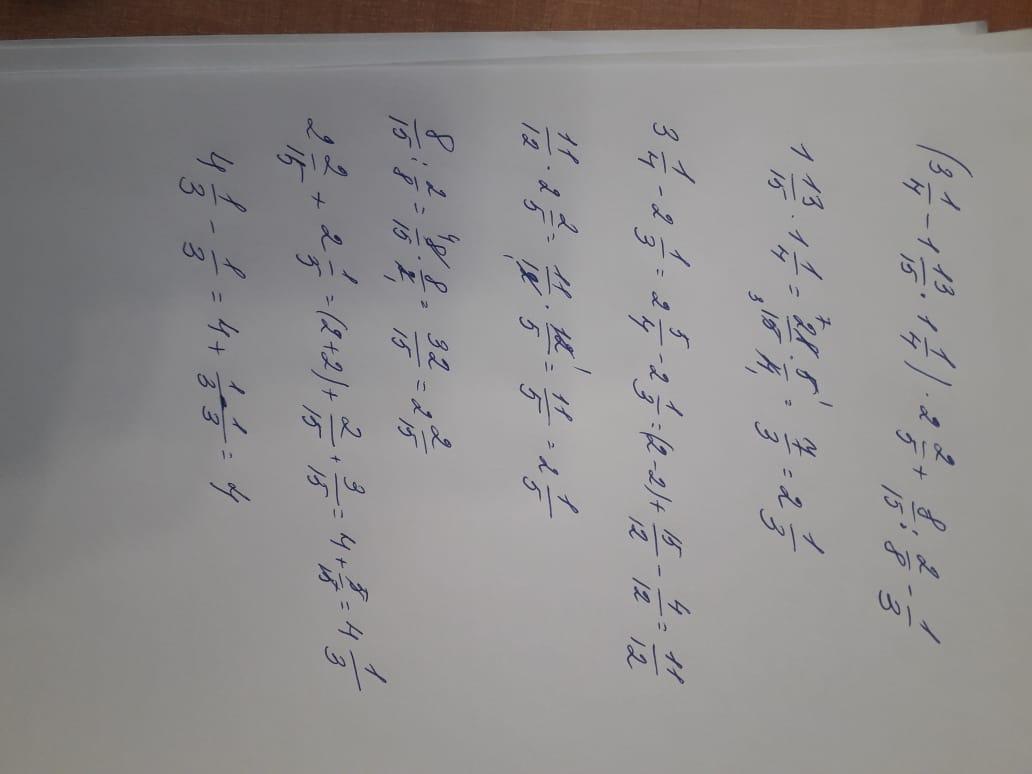 (3 1/4 - 1 13/15 · 1 1/4) · 2 2/5 + 8/15 : 2/8 - 1/3
1 13/15 · 1 1/4 = 28/15 · 5/4 = 7/3 = 2 1/3
3 1/4 - 2 1/3 = 2 5/4 - 2 1/3 = (2-2) + 15/12 - 4/12 = 11/12
11/12 · 2 2/5 = 11/12 · 12/5 = 11/5 = 2 1/5
8/15 : 2/8 = 8/15 · 8/2 = 32/15 = 2 2/15
2 2/15 + 2 1/5 = (2+2) + 2/15 + 3/15 = 4 + 5/15 = 4 1/3
4 1/3 - 1/3 = 4 + 1/3 - 1/3 = 4